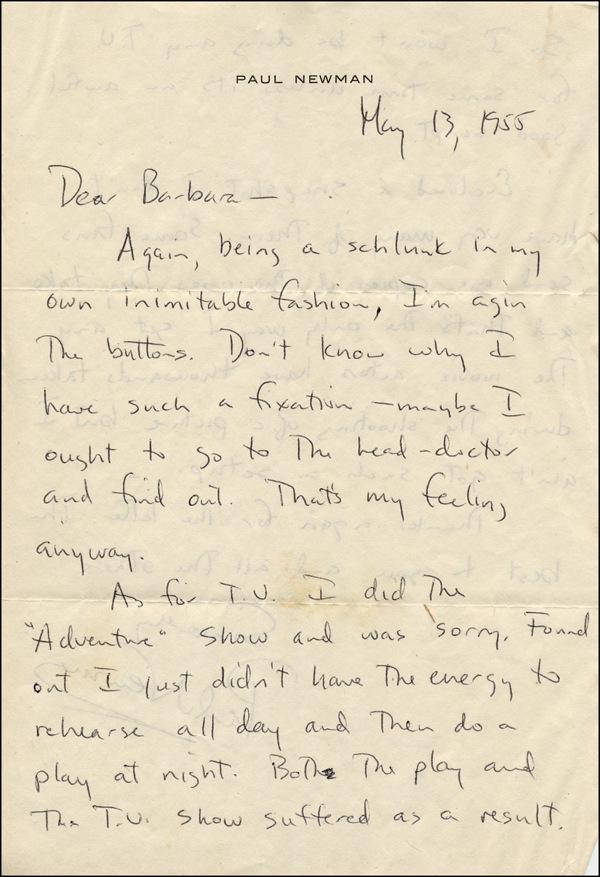 PAUL NEWMAN
May 13, 1955
Dear Barbara—
Again, being a schlunk in my
own inimitable fashion, I'm agin
The buttons. Don't know why I
have such a fixation —maybe I
ought to go to The head-doctor
and find out. That's my feeling,
anyway.
As for T.V. I did The
"Adventure" show and was sorry. Found
out I just didn't have The energy to
rehearse all day and Then do a
play at night. Both The play and
The T.V. show suffered as a result.